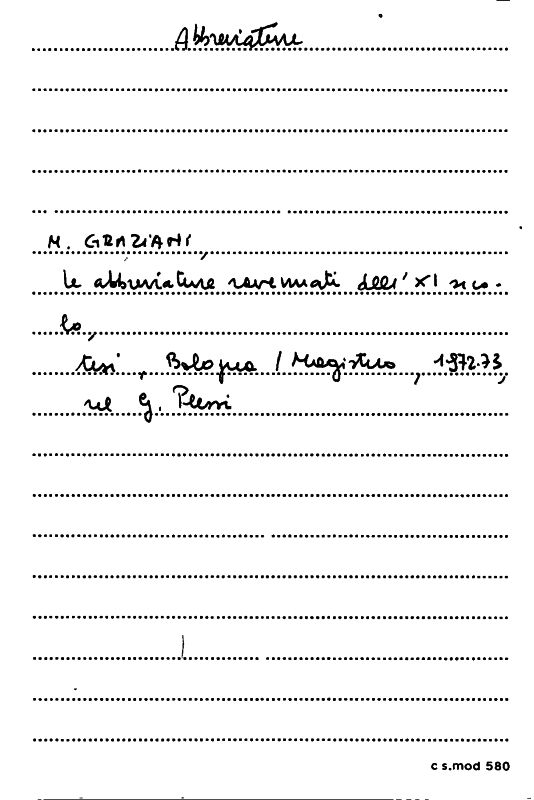 Abbreviature
M. GRAZIANI,
le abbreviature ravennati dell'XI seco-
lo,
tesi, Bologna / Magistero, 1972-73,
rel G. Plessi
c s.mod 580